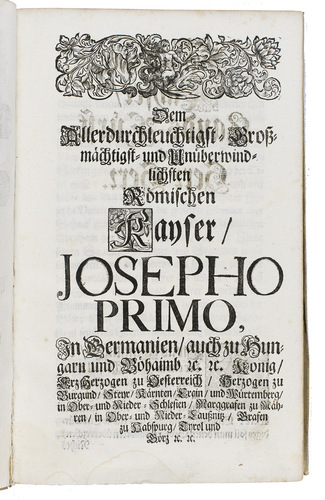 Dem
Allerdurchleuchtigst-Groß-
mächtigst-und Unüberwind-
lichsten
Römischen
Kayser/
JOSEPHO
PRIMO,
In Germanien/ auch zu Hun-
garn und Böhaimb ꝛc. ꝛc. König/
Ertz Hertzogen zu Oesterreich / Hertzogen zu
Burgund/ Steyr/ Kärnten/ Crain/ und Würtemberg/
in Ober- und Nieder-Schlesien/ Marggrafen zu Mäh-
ren/ in Ober- und Nieder-Laußnitz/ Grafen
zu Habspurg/ Tyrol und
Görz ꝛc. ꝛc.